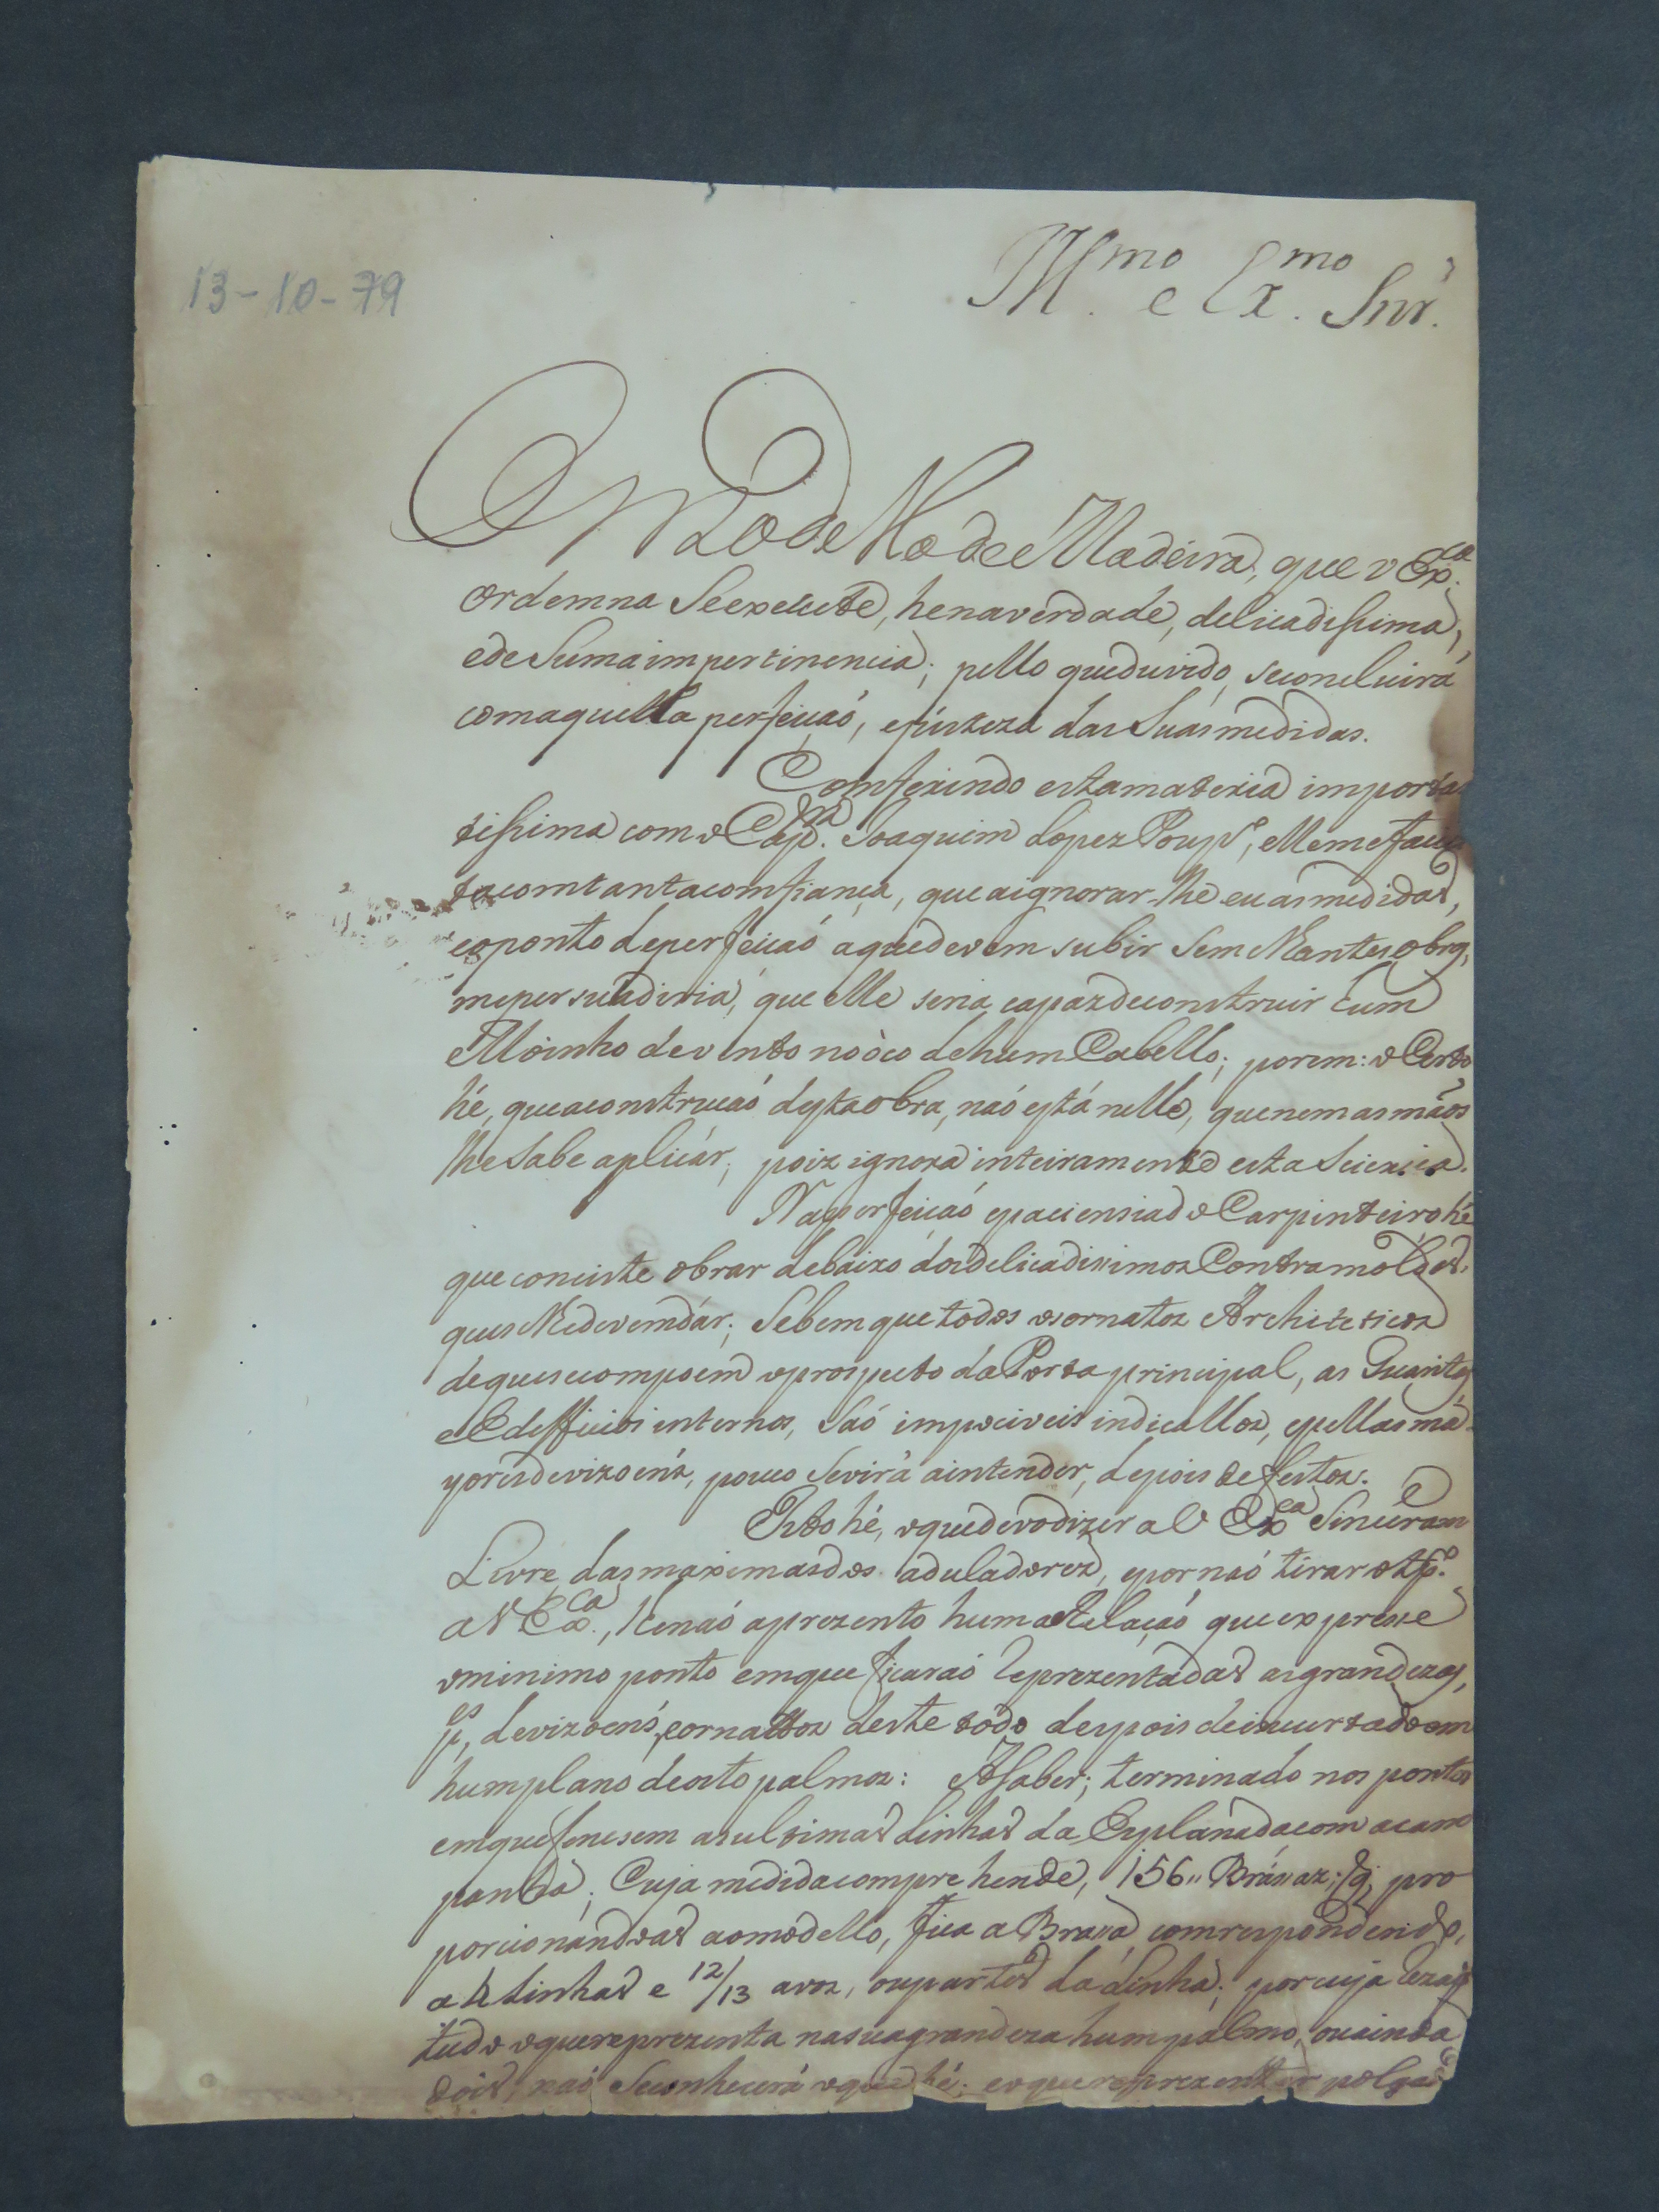 13-10-79
Illmo. e Exmo. Snr.
O Modello de Madeira, que V Exca.
ordemna Seexecute, henaverdade, delicadissima,
ede Suma impertinencia; pello queduvido, seconcluirá
comaquella perfeicaó, ejusteza das Suas medidas.
Conferindo estamateria importan
tissima com o Capm. Joaquim Lopez Poupo, elle me
tacomtantacomfiança, que aignorar-lhe eu asmedidas,
eoponto deperfeicaó aquedevem subir Semelhantes obras,
mepersuadiria, que elle seria capazdeconstruir hum
Moinho devento noòco dehum Cabello; porem: o Certo
hé, queaconstrucaó destaobra, naó está nelle, quenemasmãos
lhe Sabe aplicár; poiz ignora inteiramente esta Sciencia.
Naperfeicaó epaciensiado Carpinteiro hé
que conciste obrar debaixo dosdelicadissimos Contramoldes,
queselhedevemdár; Sebem que todos osornatos Architeticos
dequesecompoem oprospecto da Porta principal, as Guaritas,
e Edefficios internos, Saó impociveis indicallos, epellas ma-
yoresdevizoens, pouco Sevirá aintender, depois de feitos.
Isto hé, oquedevodizer a V Exca Sinceram.e
Livre dasmaximasdos aduladores, epornaó tirar o tpo.
a V Exca., lhenaó aprezento huma Relaçaó que expresse
ominimo ponto emque ficaraó Reprezentadas asgrandezas,
pes, devizoens, eornattos deste tódo despois de encurtado em
humplano deoito palmos: A Saber; terminado nos pontos
emquefenesem asultimas Linhas da Explanadacom acam
panha; Cuja medidacomprehende, 156,, Braças; q, pro
porcionandoas aomodello, fica a Braca comrespondendo,
a Linhas e 12/13 avos, oupartes da Linha; porcuja Razaõ
tudo oquereprezenta nasuagrandeza humpalmo, ouainda
dois, naó Seconhecerá oque hé; eoquereprezentar polgadas